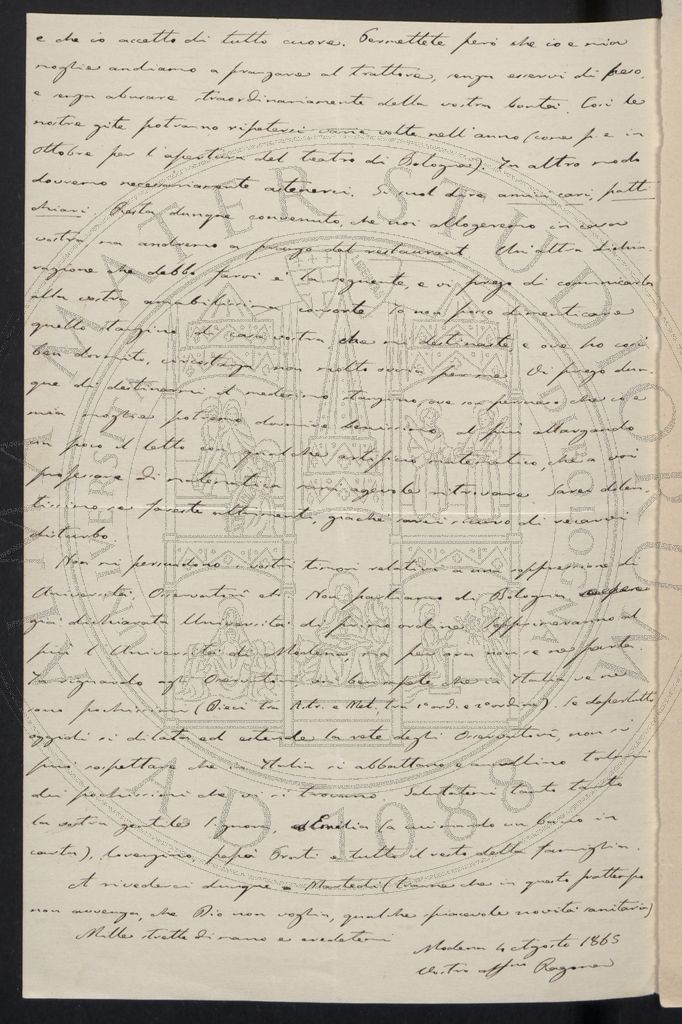 e che io accetto di tutto cuore. Permettete però che io e mia
moglie andiamo a pranzare al trattore, senza esservi di peso,
e senza abusare straordinariamente della vostra bontà. Così le
nostre gite potranno ripetersi varie volte nell'anno (come p. e. in
Ottobre per l'apertura del teatro di Bologna). In altro modo
dovremo necessariamente astenerci. Si suol dire, amici cari, patti
chiari. Resta dunque convenuto, che noi allogeremo in casa
vostra ma andremo a pranzo dal restaurant. Un'altra dichia-
razione che debbo farvi è la seguente, e vi prego di comunicarla
alla vostra amabilissima consorte. Io non posso dimenticare
quello stanzino di casa vostra che mi destinaste, e ove ho così
ben dormito, circostanza non molto ovvia per me. Vi prego dun-
que di destinarmi il medesimo stanzino, ove son persuaso che io e
mia moglie potremo dormire benissimo, al più allargando
un poco il letto con qualche artifizio matematico, che a voi
professore di matematica sarà agevole ritrovare. Sarei dolen-
tissimo se faceste altrimenti, giacchè sarei sicuro di recarvi
disturbo.
Non mi persuadono i vostri timori relativi a una soppressione di
Università, Osservatorî etc. Non parliamo di Bologna,
già dichiarata Università di primo ordine. Sopprimeranno al
più l'Università di Modena, ma per ora non se ne parla.
In riguardo agli Osservatorî, voi ben sapete che in Italia ve ne
sono pochissimi (Dieci tra Astr. e Met. tra 1° ord. e 2° ordine). Se dapertutto
oggidì si dilata ed estende la rete degli Osservatorî, non si
può sospettare che in Italia si abbattano e annullino taluni
dei pochissimi che vi si trovano. Salutatemi tanto tanto
la vostra gentile Signora, Emilia (a cui mando un bacio in
carta), Lorenzino, papà Prati e tutto il resto della famiglia.
A rivederci dunque a Martedì (tranne che in questo frattempo
non avvenga, che Dio non voglia, qualche piacevole novità sanitaria)
Mille strette di mano e credetemi
Modena 4 Agosto 1865
Vostro affmo Ragona
ALMA MATER STUDIORUM
UNIVERSITÀ DI BOLOGNA
A.D. 1088